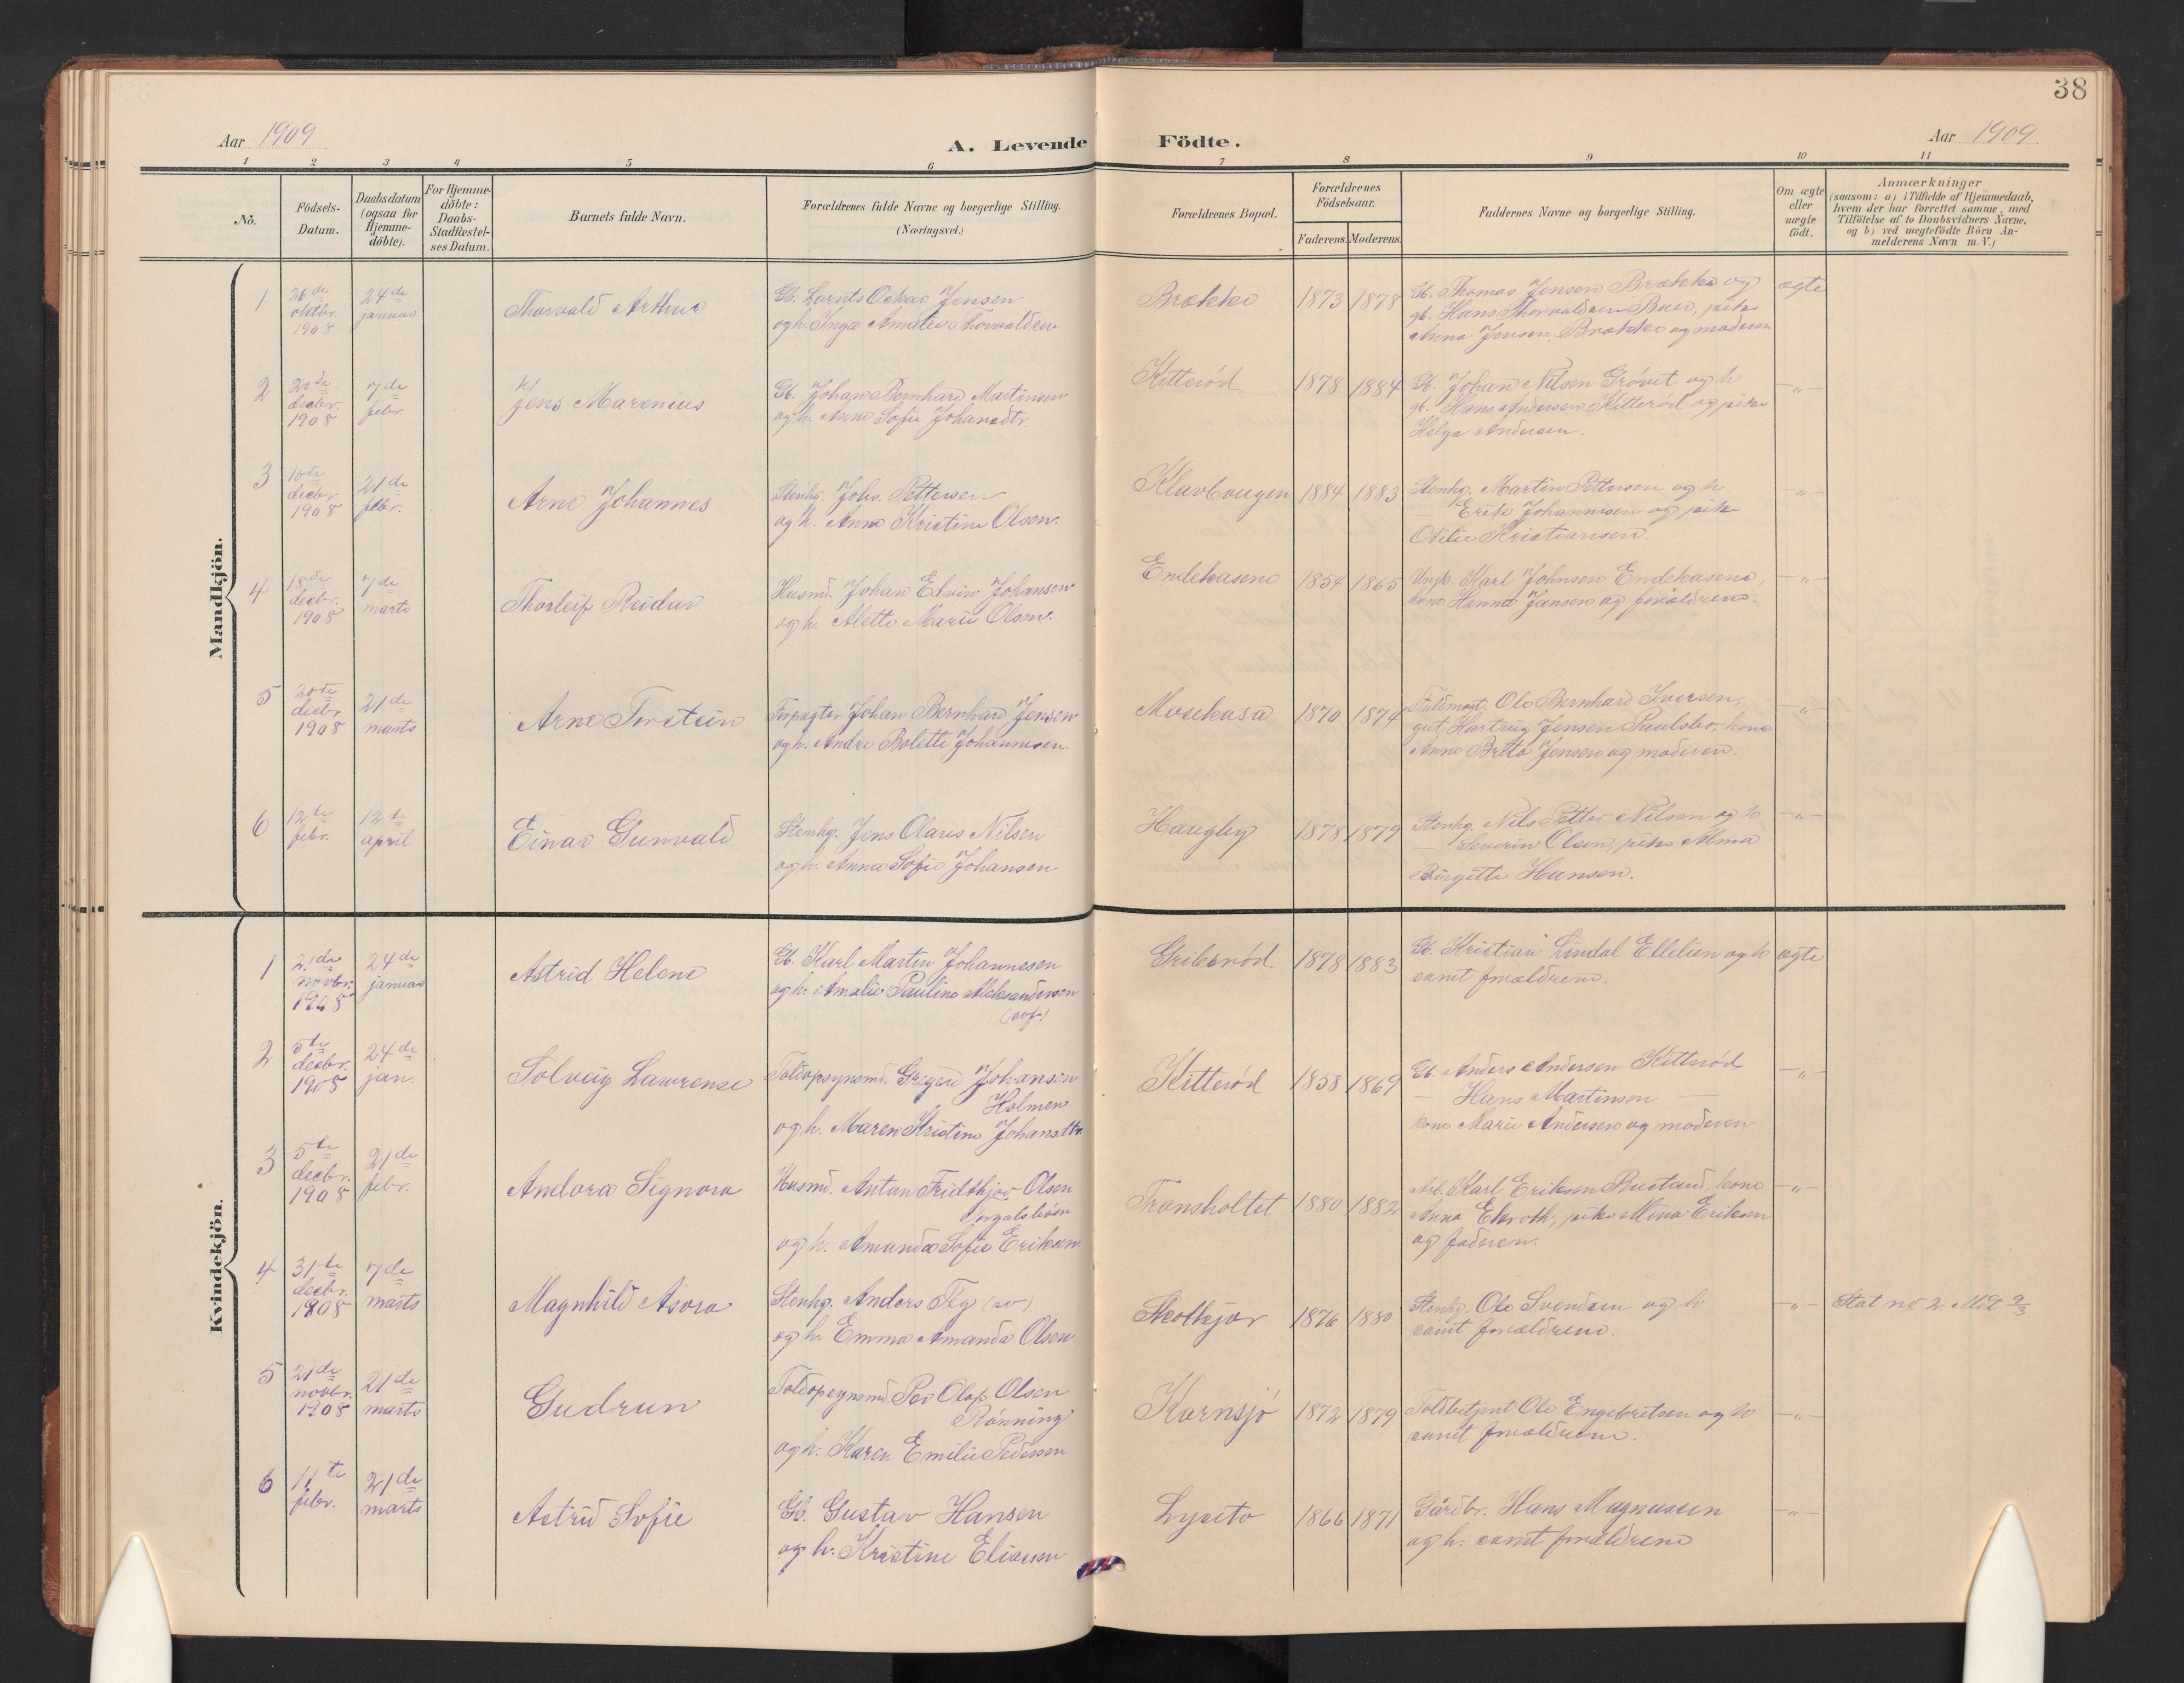 38
Aar 1909
A. Levende Födte.
Aar 1909
1 2 3 4 5 6 7 8 9 10 11
No.
Födsels-
Datum.
Daabsdatum
(ogsaa for
Hjemme-
døbte).
For Hjemme-
döbte:
Daabs-
Stadfæstel-
ses Datum.
Barnets fulde Navn.
Forældrenes fulde Navne og borgerlige Stilling.
(Næringsvei.)
Forældrenes Bopæl.
Forældrenes
Födselsaar.
Faderens. Moderens.
Faddernes Navne og borgerlige Stilling.
Om ægte
eller
uægte
födt.
Anmærkninger
(saasom: a) i Tilfælde af Hjemmedaab,
hvem der har forrettet samme, med
Tilföielse af to Daabsvidners Navne.
og b) ved uægtefödte Börn An-
melderens Navn m.V.)
Mandkjön.
1
26de
oktbr.
1908
24de
januar
Thorvald Arthur
Gb. Lornts Oskar Jensen
og h. Inga Amalie Thorvaldsen
Brække
1873 1878
Gb. Thomas Jensen Brække og
gb. Hans Thorvaldsen Buer, pike
Anna Jensen Brække og moderen
ægte
2
20de
decbr.
1908
7de
febr.
Jens Marenius
Gb. Johan Bernhard Martinsen
og h. Anna Sofie Johansdtr.
Kitterød
1878 1884
Gb. Johan Nilsen Grövet og h
gb. Hans Andersen Kitterød og pike
Helga Andersen.
— „ —
3
10de
decbr.
1908
21de
febr.
Arne Johannes
Stenhg. Johs. Pettersen
og h. Anna Kristine Olsen.
Klavhaugen
1884 1883
Stenhg. Martin Pettersen og h
— Erik Johannesen og pike
Otilie Kristiansen.
— „ —
4
18de
decbr.
1908
7de
marts
Thorleif Reidar
Husmd. Johan Edvin Johansen
og h. Alette Marie Olsen.
Endekasene
1854 1865
Ungk. Karl Johnsen Endekasene,
kone Hanna Jansen og forældrene.
— „ —
5
20de
decbr.
1908
21de
marts
Arne Torstein
Forpagter Johan Bernhard Jensen
og h. Andre Bolette Johannesen
Mosekasa
1870 1874
Fuldmægt. Ole Bernhard Iversen,
gut Hartvig Jensen Paulsbo, kone
Anne Brita Jensen og moderen.
— „ —
6
12te
febr.
12te
april
Einar Gunvald
Stenhg. Jens Olaves Nilsen
og h. Anna Sofie Johansen
Haugby
1878 1879
Stenhg. Nils Petter Nilsen og h
— Severin Olsen, pike Alma
Birgitte Hansen.
— „ —
Kvindekjön.
1
21de
novbr.
1908
24de
januar
Astrid Helene
Gb. Karl Martin Johannesen
og h. Amalie Pauline Aleksandersen
Griberød
1878 1883
Gb. Kristian Lindal Ellelien og h
samt forældrene.
ægte
2
5te
decbr.
1908
24de
jan.
Solveig Lawrense
Toldopsynsmd. Gregerd Johansen
Holmen
og h. Maren Kristine Johansdtr.
Kitterød
1858 1869
Gb Anders Andersen Kitterød
— Hans Martinsen —
kone Marie Andersen og moderen
— „ —
3
5te
decbr.
1908
21de
febr.
Andora Signora
Husmd. Anton Fridthjov Olsen
og h. Amanda Sofie Eriksen
Tronsholtet
1880 1882
Arb. Karl Eriksen Bustad, kone
Anna Ekroth, pike Mina Eriksen
og faderen.
— „ —
4
31te
decbr.
1908
7de
marts
Magnhild Asora
Stenhg. Anders Teg (sv)
og h. Emma Amanda Olsen
Skotkjær
1876 1880
Stenhg. Ole Svendsen og h.
samt forældrene.
— „ —
Stat nr 2. Mdt 9/3
5
21de
novbr.
1908
21de
marts
Gudrun
Toldopsynsmd. Per Olaf Olsen
Rönning
og h. Karen Emilie Pedersen
Kornsjø
1872 1879
Toldbetjent Ole Engebretsen og h
samt forældrene.
— „ —
6
11te
febr.
21de
marts
Astrid Sofie
Gb. Gustav Hansen
og h. Kristine Eliasen
Lyseto
1866 1871
Gårdbr. Hans Magnussen
og h. samt forældrene
— „ —